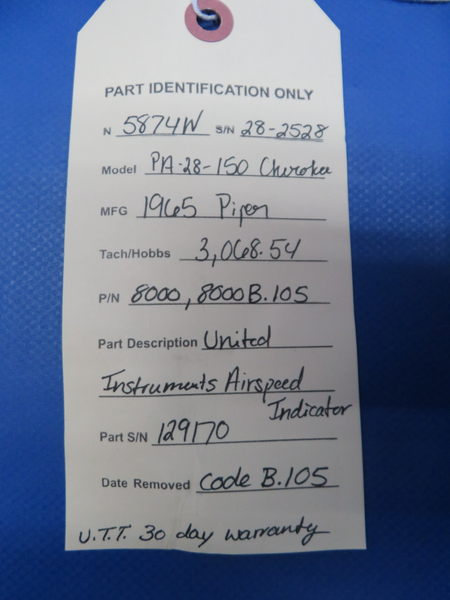 PART IDENTIFICATION ONLY
N 5874W S/N 28-2528
Model PA-28-150 Cherokee
MFG 1965 Piper
Tach/Hobbs 3,068.54
P/N 8000, 8000B.105
Part Description United
Instruments Airspeed
Indicator
Part S/N 129170
Date Removed Code B.105
U.T.T. 30 day warranty